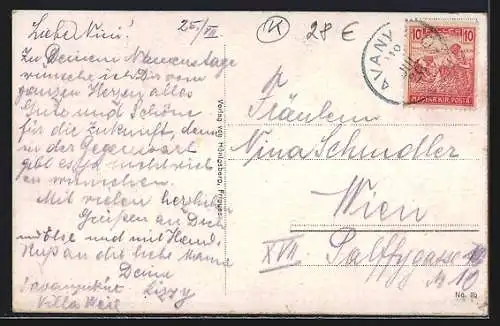 Liebe Nini!
25./VII.
Zu Deinem Namenstage
wünsche ich Dir vom
ganzen Herzen alles
Gute und Schöne
für die Zukunft, denn
in der Gegenwart
gibt es ja nicht viel
zu wünschen.
Mit vielen herzlichen
Grüßen an Dich
und Else und mit Hand-
kuß an die liebe Mama
Deine
Lizzy
Savanyukút
Villa
K
28 €
AVANY
10
10
MAGYAR KIR. POSTA
Verlag von Hönigsberg,
Fräulein
Nina Schindler
Wien
XVII
Palffygasse
No 10
No.